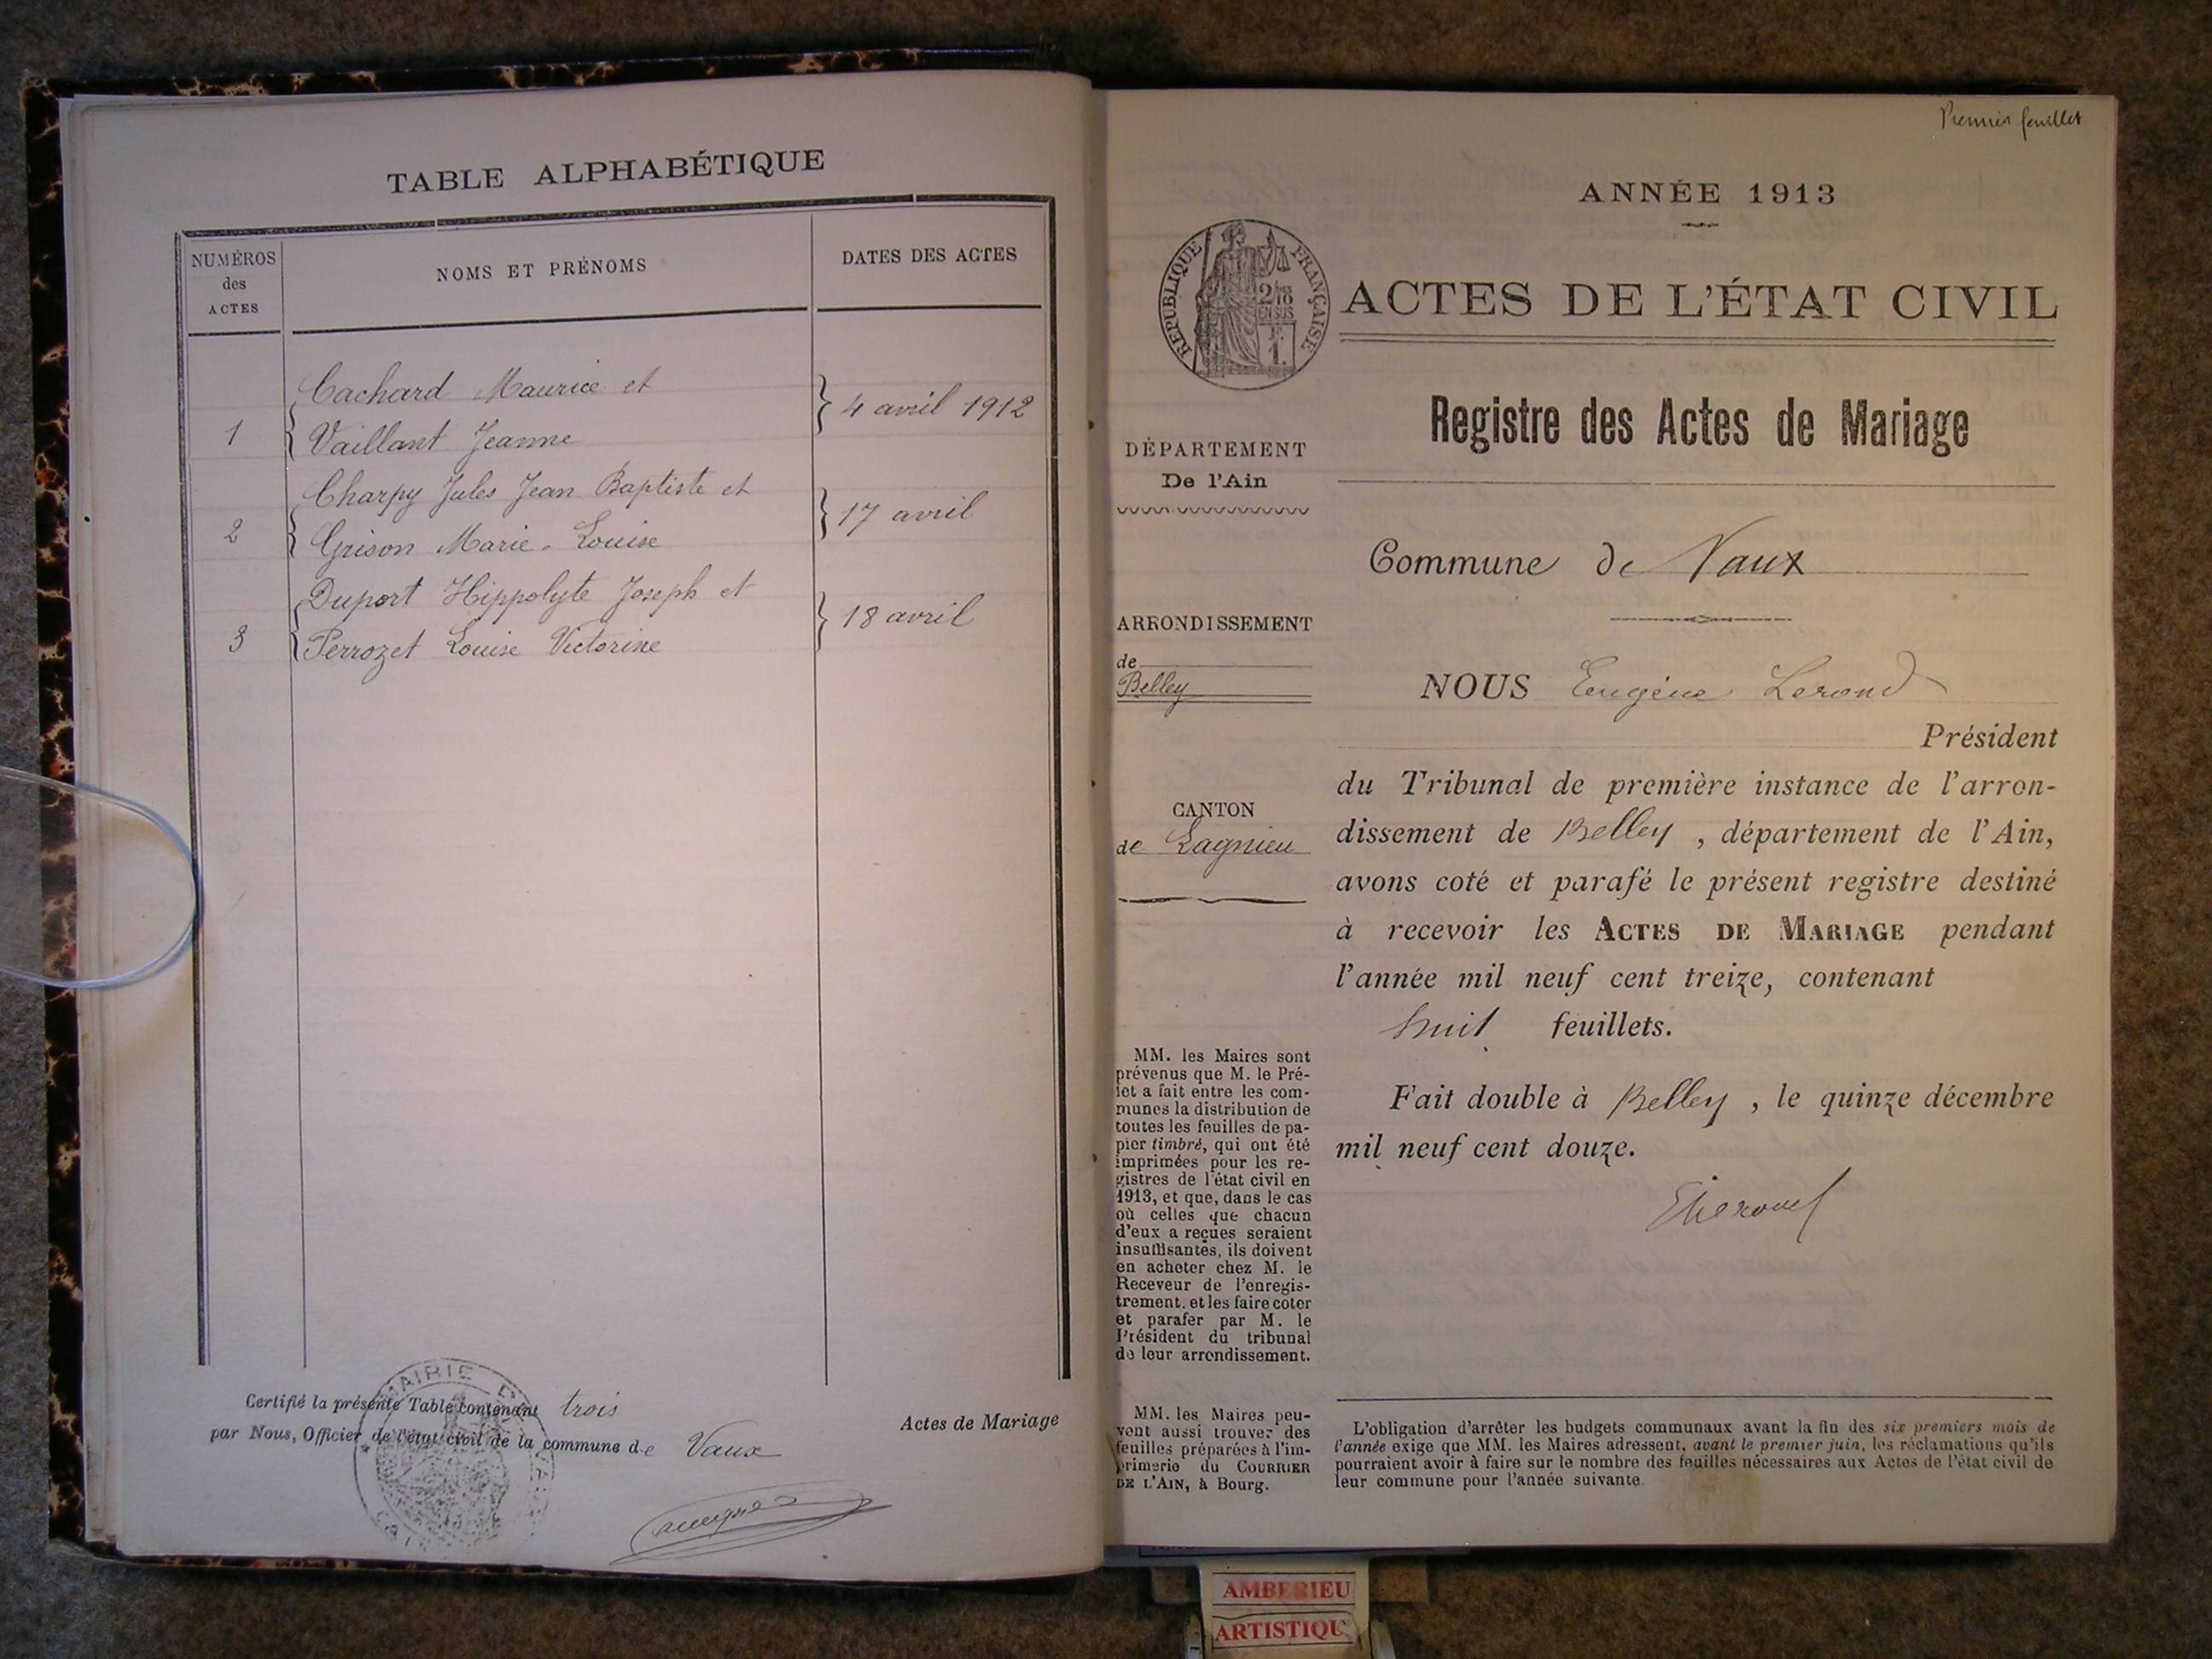 TABLE ALPHABÉTIQUE
NUMÉROS
des
ACTES
NOMS ET PRÉNOMS
DATES DES ACTES
Cachard Maurice et
4 avril 1912
1
Vaillant Jeanne
Charpy Jules Jean Baptiste et
17 avril
2
Grison Marie-Louise
Duport Hippolyte Joseph et
18 avril
3
Perrozet Louise Victorine
Certifié la présente Table contenant trois
Actes de Mariage
par Nous, Officier de l'état civil de la commune de Vaux
MAIRIE
Premier feuillet
ANNÉE 1913
RÉPUBLIQUE FRANÇAISE
ACTES DE L'ÉTAT CIVIL
Registre des Actes de Mariage
DÉPARTEMENT
De l'Ain
Commune de Vaux
ARRONDISSEMENT
de
Belley
CANTON
de Lagnieu
NOUS Eugène Lerond
Président
du Tribunal de première instance de l'arron-
dissement de Belley, département de l'Ain,
avons coté et parafé le présent registre destiné
à recevoir les ACTES DE MARIAGE pendant
l'année mil neuf cent treize, contenant
huit feuillets.
Fait double à Belley, le quinze décembre
mil neuf cent douze.
MM. les Maires sont
prévenus que M. le Pré-
fet a fait entre les com-
munes la distribution de
toutes les feuilles de pa-
pier timbré, qui ont été
imprimées pour les re-
gistres de l'état civil en
1913, et que, dans le cas
où celles que chacun
d'eux a reçues seraient
insuffisantes, ils doivent
en acheter chez M. le
Receveur de l'enregis-
trement, et les faire coter
et parafer par M. le
Président du tribunal
de leur arrondissement.
MM. les Maires peu-
vent aussi trouver des
feuilles préparées à l'im-
primerie du COURRIER
DE L'AIN, à Bourg.
L'obligation d'arrêter les budgets communaux avant la fin des six premiers mois de
l'année exige que MM. les Maires adressent, avant le premier juin, les réclamations qu'ils
pourraient avoir à faire sur le nombre des feuilles nécessaires aux Actes de l'état civil de
leur commune pour l'année suivante.
AMBERIEU
ARTISTIQU